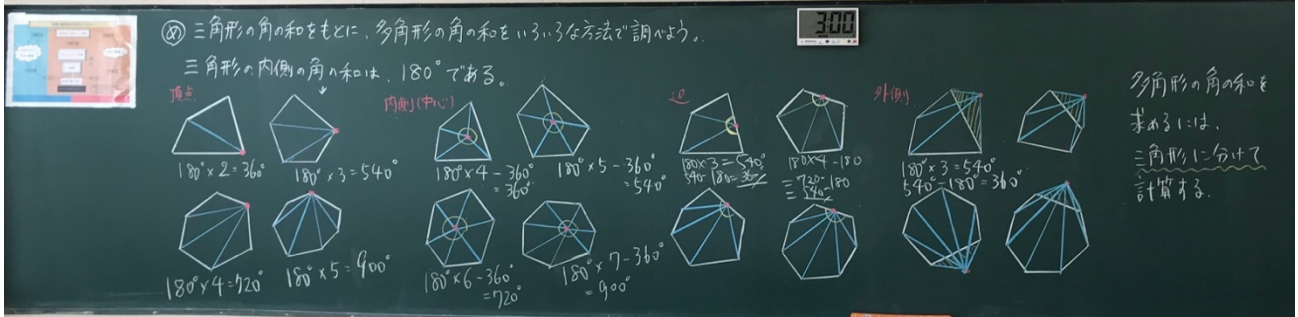 め 三角形の角の和をもとに、多角形の角の和をいろいろな方法で調べよう。
三角形の内側の角の和は、180°である。
頂点
180°×2=360°
180°×3=540°
180°×4=720°
180°×5=900°
内側(中心)
180°×4-360°
=360°
180°×5-360°
=540°
180°×6-360°
=720°
180°×7-360°
=900°
辺
180×3=540°
540-180=360
180×4-180
=720-180
=540
外側
180°×3=540°
540°-180°=360°
多角形の角の和を
求めるには、
三角形に分けて
計算する。
3:00